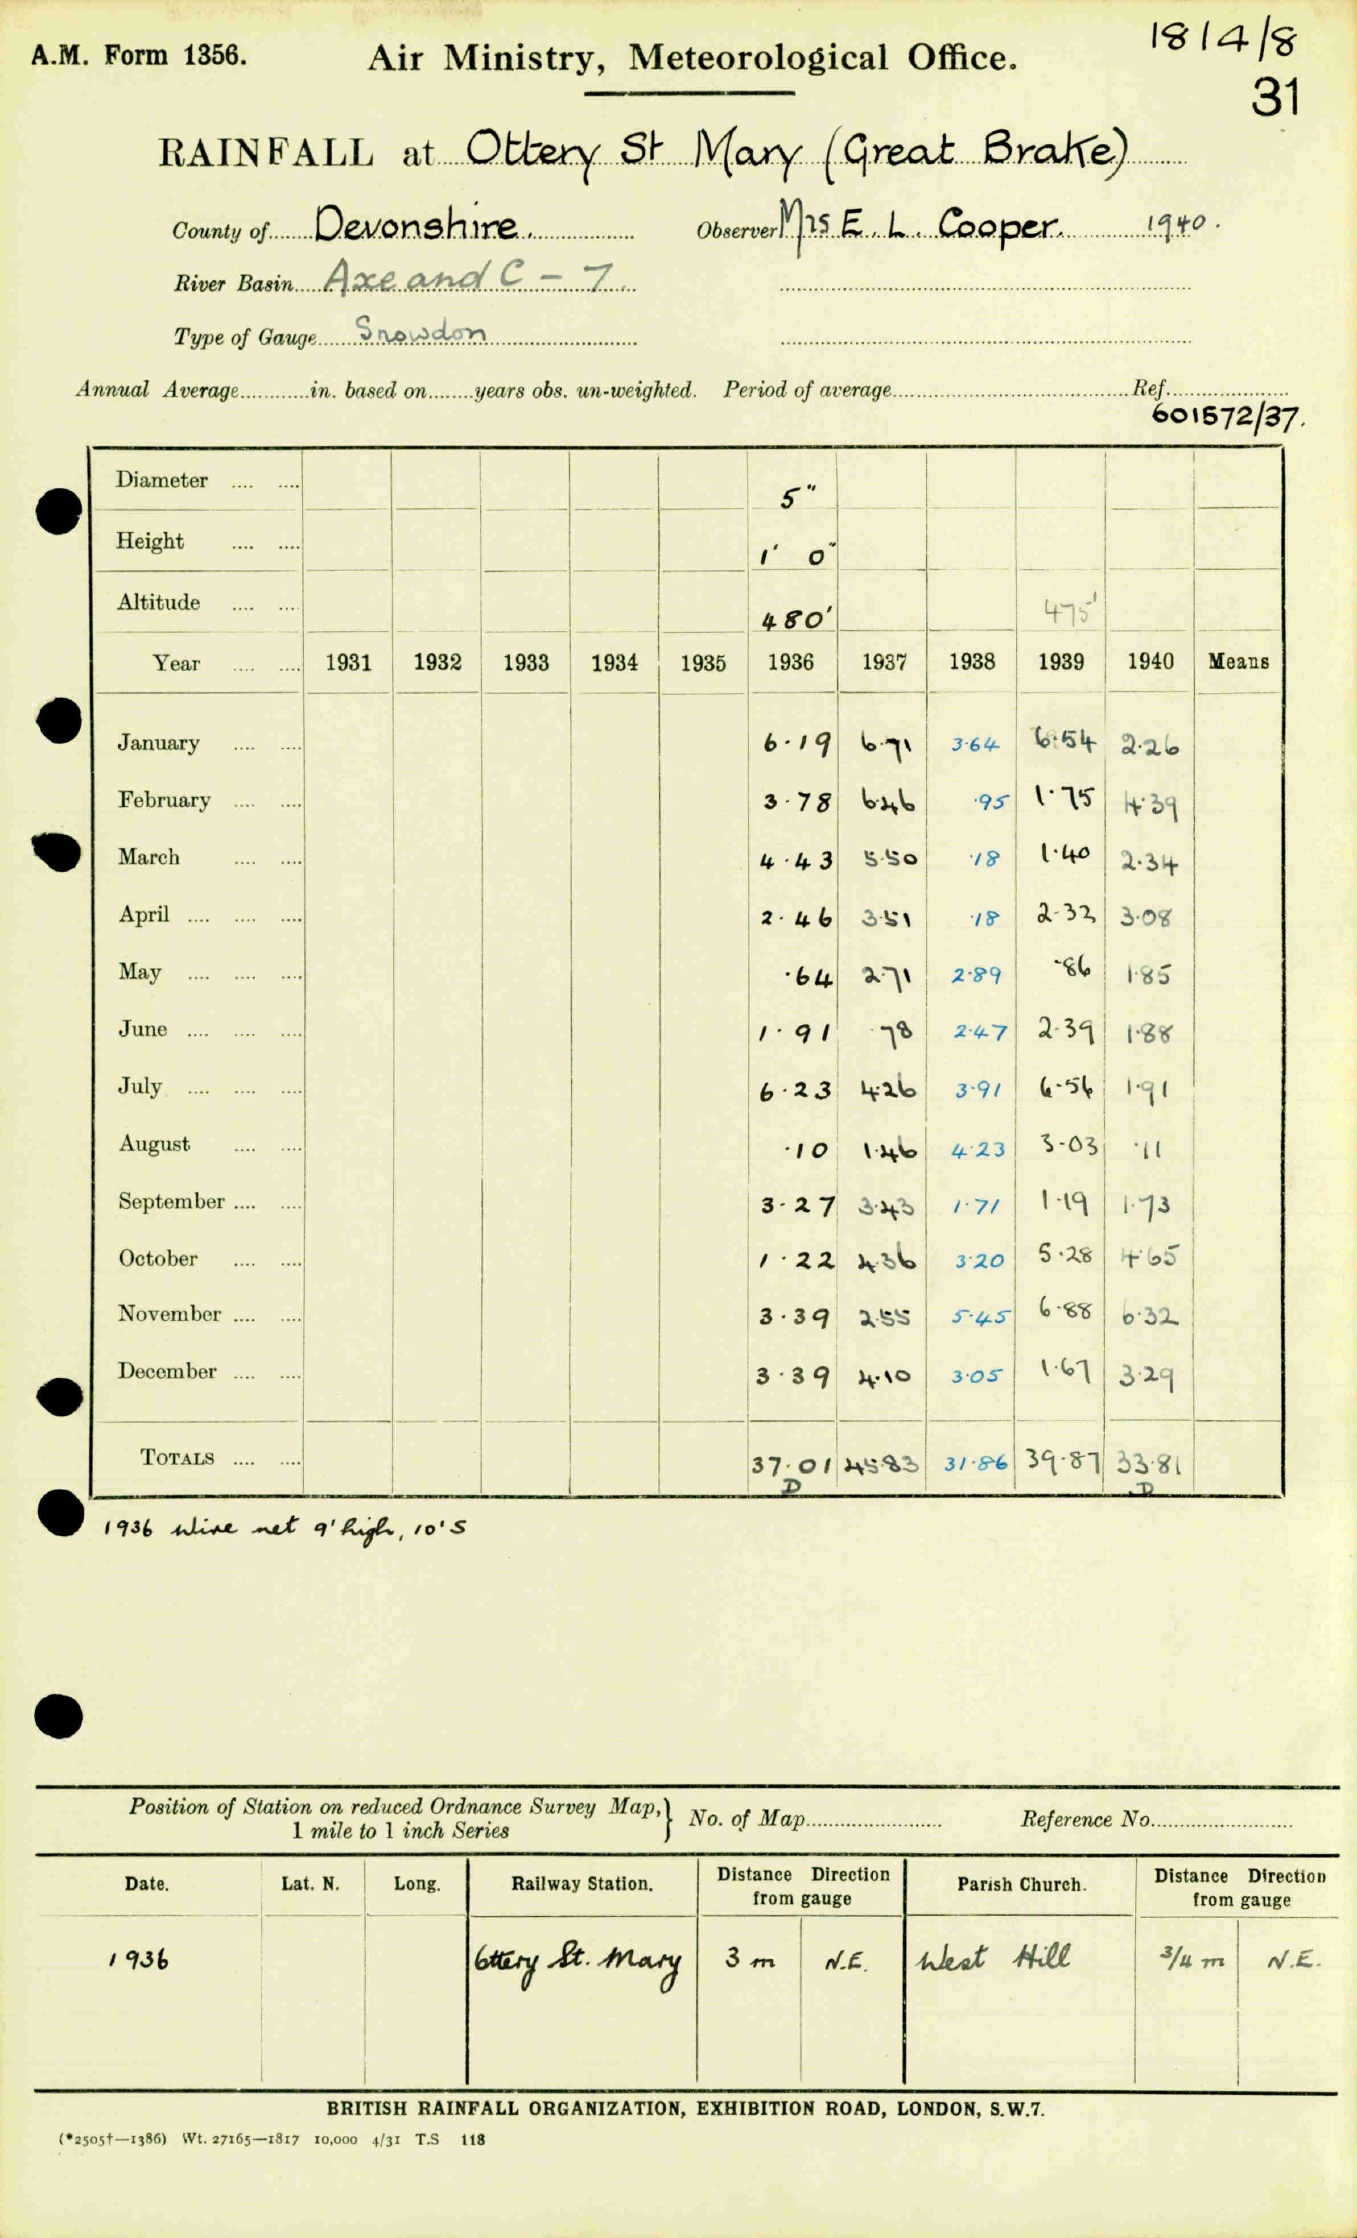 A.M. Form 1356. Air Ministry, Meteorological Office. 1814/8
31
RAINFALL at Ottery St Mary (Great Brake)
County of Devonshire. Observer Mrs E. L. Cooper. 1940.
River Basin Axe and C – 7.
Type of Gauge Snowdon
Annual Average in. based on years obs. un-weighted. Period of average Ref.
601572/37.
Diameter 5"
Height 1' 0"
Altitude 480' 475'
Year 1931 1932 1933 1934 1935 1936 1937 1938 1939 1940 Means
January 6.19 6.71 3.64 6.54 2.26
February 3.78 6.46 .95 1.75 4.39
March 4.43 5.50 .18 1.40 2.34
April 2.46 3.51 .18 2.32 3.08
May .64 2.71 2.89 .86 1.85
June 1.91 .78 2.47 2.39 1.88
July 6.23 4.26 3.91 6.56 1.91
August .10 1.46 4.23 3.03 .11
September 3.27 3.43 1.71 1.19 1.73
October 1.22 4.36 3.20 5.28 4.65
November 3.39 2.55 5.45 6.88 6.32
December 3.39 4.10 3.05 1.67 3.29
TOTALS 37.01 45.83 31.86 39.87 33.81
D D
1936 Wire net 9' high, 10' S
Position of Station on reduced Ordnance Survey Map, 1 mile to 1 inch Series } No. of Map Reference No.
Date. Lat. N. Long. Railway Station. Distance Direction from gauge Parish Church. Distance Direction from gauge
1936 Ottery St. Mary 3 m N.E. West Hill 3/4 m N.E.
BRITISH RAINFALL ORGANIZATION, EXHIBITION ROAD, LONDON, S.W.7.
(*2505†—1386) Wt. 27165—1817 10,000 4/31 T.S 118